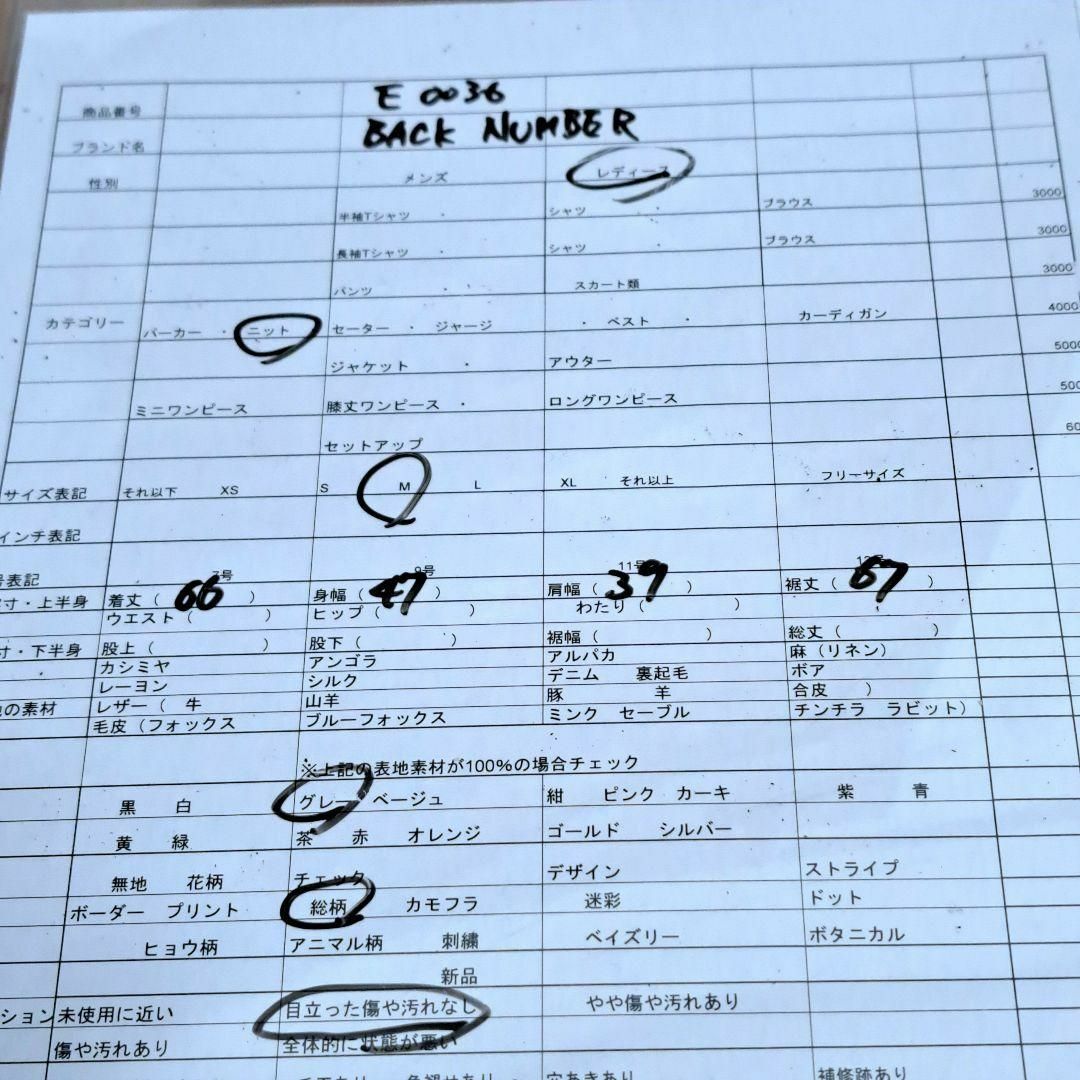 商品番号 E 0036
ブランド名 BACK NUMBER
性別 メンズ レディース
半袖Tシャツ ・ シャツ ・ ブラウス 3000
長袖Tシャツ ・ シャツ ・ ブラウス 3000
パンツ ・ ・ スカート類 3000
カテゴリー パーカー ・ ニット ・ セーター ・ ジャージ ・ ベスト ・ カーディガン 4000
ジャケット ・ アウター 5000
ミニワンピース 膝丈ワンピース ・ ロングワンピース 500
セットアップ 60
サイズ表記 それ以下 XS S M L XL それ以上 フリーサイズ
インチ表記
号表記 7号 9号 11号 13号
寸・上半身 着丈（ 66 ） 身幅（ 47 ） 肩幅（ 39 ） 裄丈（ 67 ）
ウエスト（ ） ヒップ（ ） わたり（ ）
寸・下半身 股上（ ） 股下（ ） 裾幅（ ） 総丈（ ）
カシミヤ アンゴラ アルパカ 麻（リネン）
レーヨン シルク デニム 裏起毛 ボア
の素材 レザー（ 牛 山羊 豚 羊 合皮 ）
毛皮（フォックス ブルーフォックス ミンク セーブル チンチラ ラビット）
※上記の表地素材が100%の場合チェック
黒 白 グレー ベージュ 紺 ピンク カーキ 紫 青
黄 緑 茶 赤 オレンジ ゴールド シルバー
無地 花柄 チェック デザイン ストライプ
ボーダー プリント 総柄 カモフラ 迷彩 ドット
ヒョウ柄 アニマル柄 刺繍 ペイズリー ボタニカル
新品
ション 未使用に近い 目立った傷や汚れなし やや傷や汚れあり
傷や汚れあり 全体的に状態が悪い
色褪せあり 穴あきあり 補修跡あり